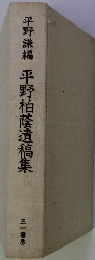 平野謙編
平野柏蔭遺稿集
三一書房